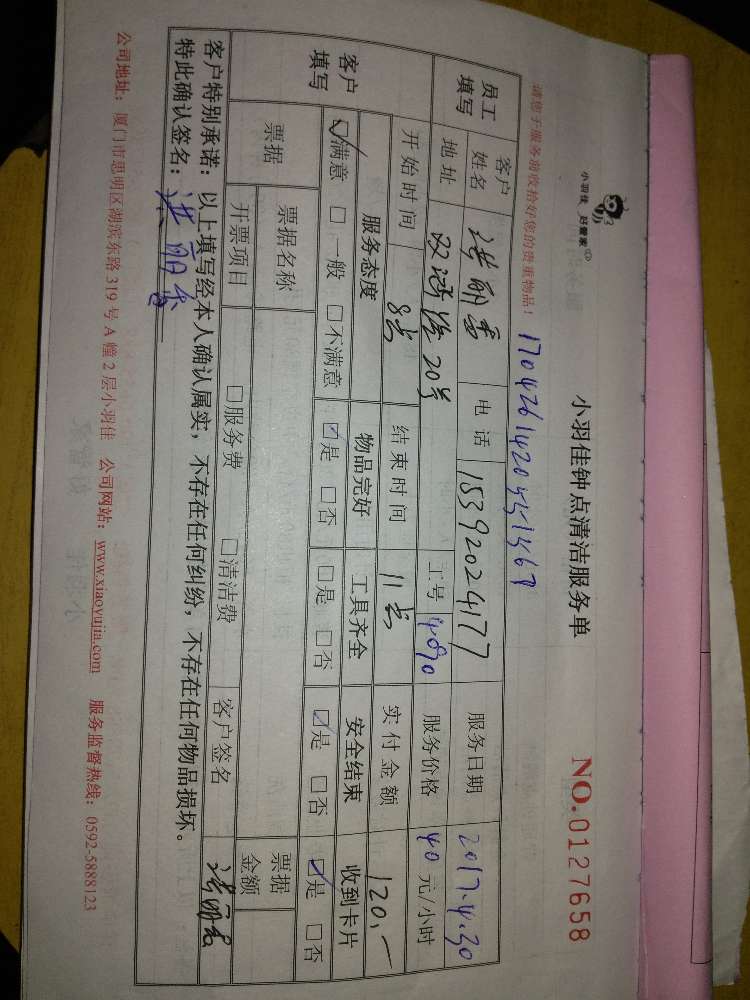 小羽佳 好管家
小羽佳钟点清洁服务单
NO.0127658
请您于服务前收拾好您的贵重物品！
员工填写
客户姓名 洪丽香 电话 15392024177 服务日期 2017.4.30
地址 双涵路20号 工号 4090 服务价格 40 元/小时
开始时间 8点 结束时间 11点 实付金额 120.一
客户填写
服务态度 物品完好 工具齐全 安全结束 收到卡片
☑满意 □一般 □不满意 ☑是 □否 □是 □否 ☑是 □否 ☑是 □否
票据 票据名称 票据金额
开票项目 □服务费 □清洁费 客户签名 洪丽香
客户特别承诺：以上填写经本人确认属实，不存在任何纠纷，不存在任何物品损坏。
特此确认签名：洪丽香
公司地址：厦门市思明区湖滨东路 319 号 A 幢 2 层小羽佳 公司网站：www.xiaoyujia.com 服务监督热线：0592-5888123